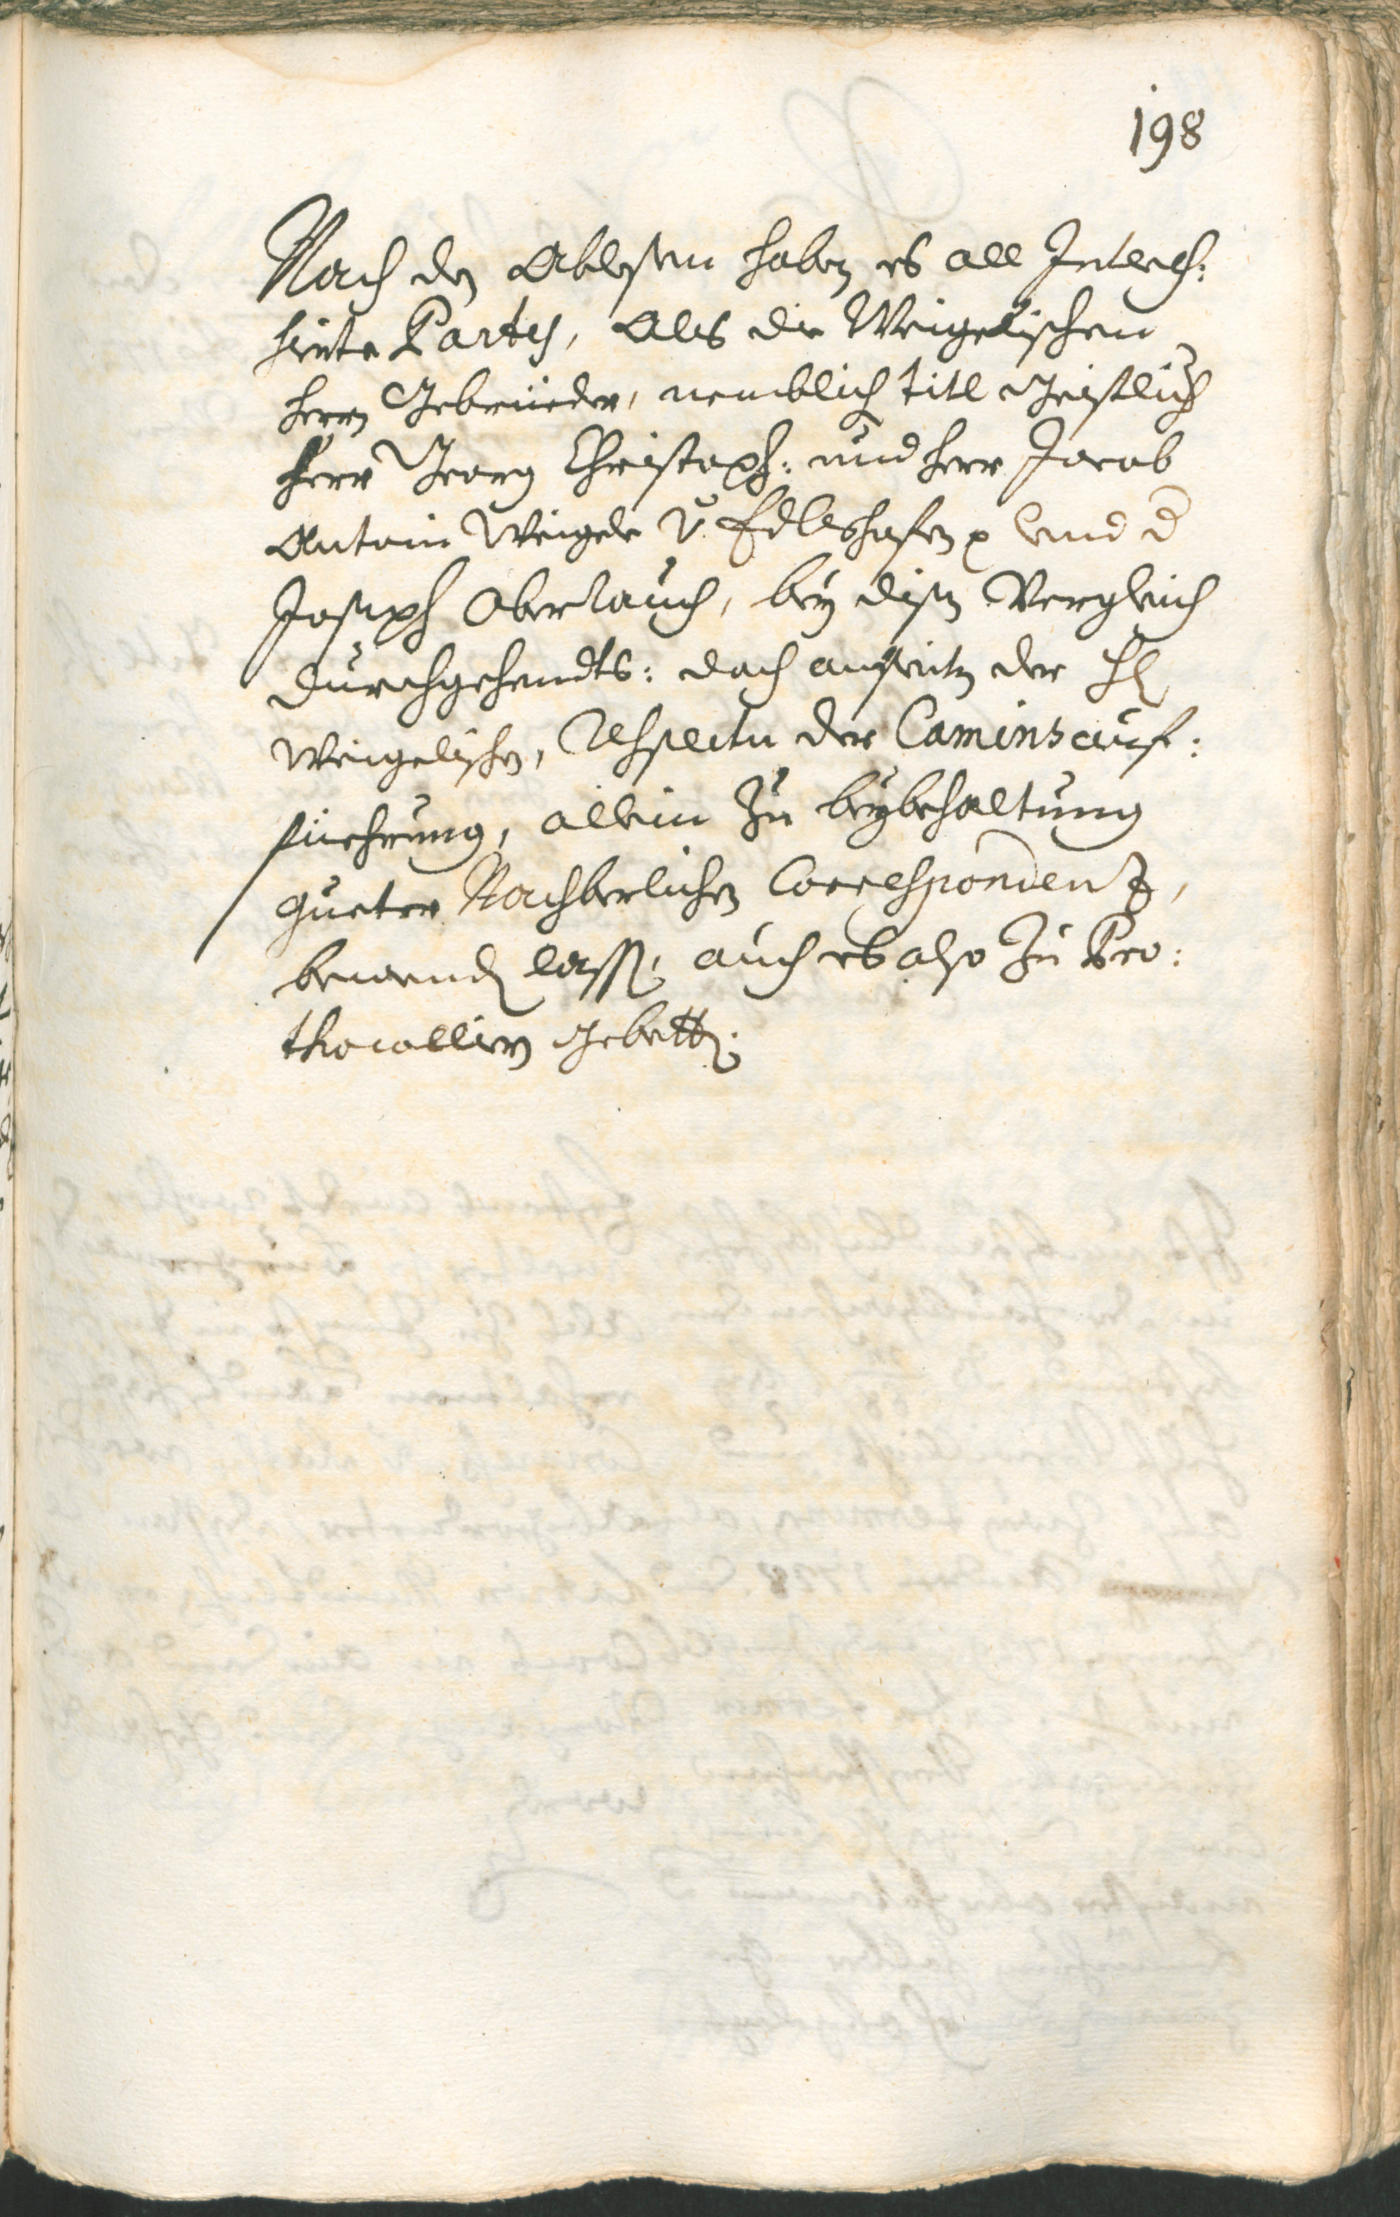 198
Nach den Ablesen haben es all Interess:
sierte Partey, Als die Weigelischen
herrn Gebrüeder, nemblich titl Geistlich
herr Georg Christoph: und herr Jacob
Antoni Weigele v: Edleshofen und
Joseph Oberlauch, bey disen Vergleich
durchgehendts: doch anseiten der H
Weigelischen, respectu der Camins auf:
füehrung, allein zu beybehaltung
gueter Nachberlichen Correspondenz,
bewenden lassen, auch es also zu Pro:
thocolliern gebetten.